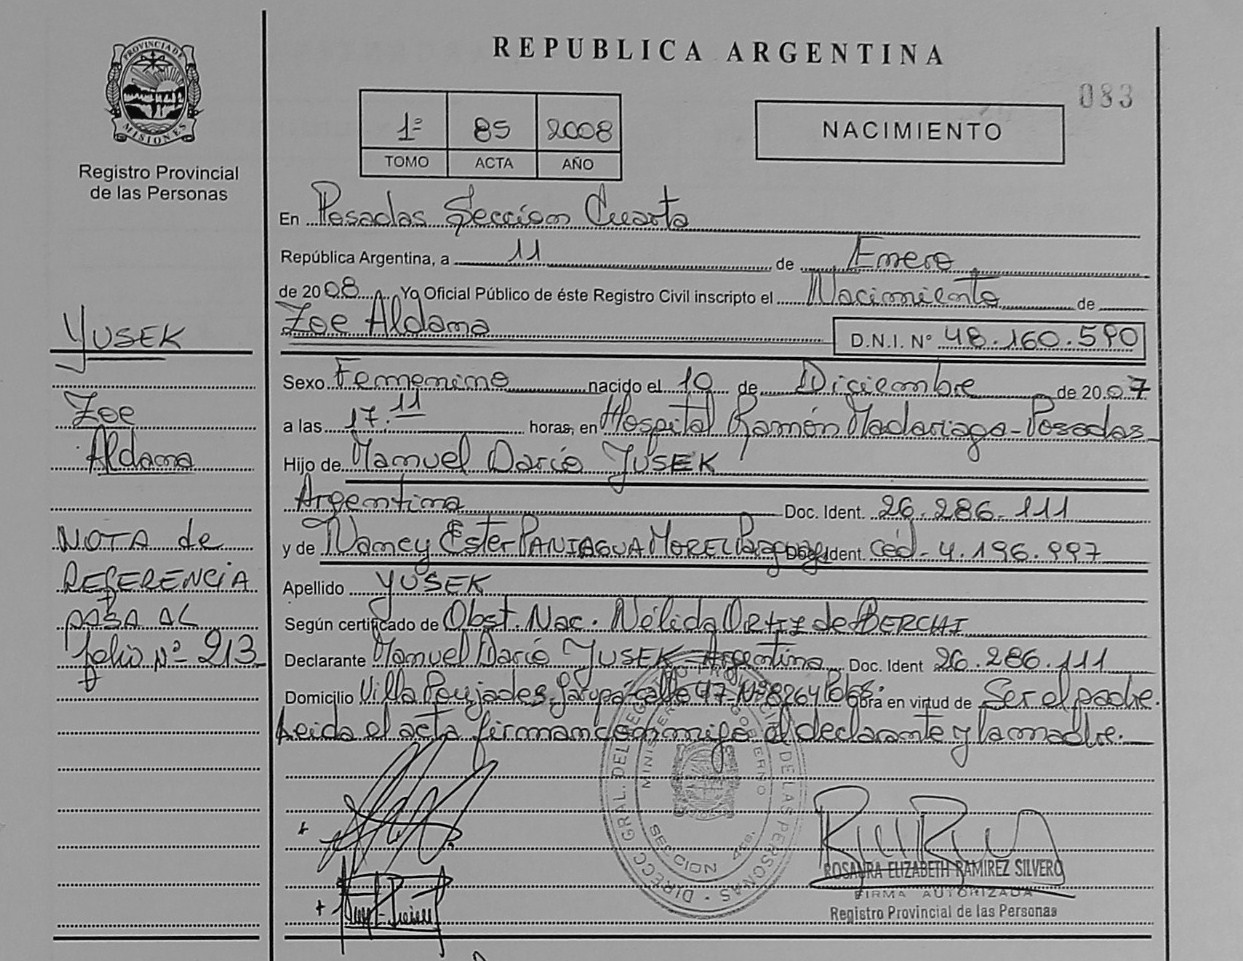 PROVINCIA DE
MISIONES
Registro Provincial
de las Personas
REPUBLICA ARGENTINA
083
1º 85 2008
TOMO ACTA AÑO
NACIMIENTO
En Posadas Sección Cuarta
República Argentina, a 11 de Enero
de 2008 Yo Oficial Público de éste Registro Civil inscripto el Nacimiento de
Zoe Aldana
D.N.I. Nº 48.160.590
Sexo Femenino nacido el 10 de Diciembre de 2007
a las 17:11 horas, en Hospital Ramón Madariaga - Posadas
Hijo de Manuel Darío YUSEK
Argentina Doc. Ident. 26.286.111
y de Nancy Ester PANIAGUA MOREL Paraguay Doc. Ident. Céd. 4.196.997
Apellido YUSEK
Según certificado de Obst. Nac. Nélida ORTIZ de BERCHI
Declarante Manuel Darío YUSEK - Argentina Doc. Ident 26.286.111
Domicilio Villa Poujades, Garupá calle 47 Nº 8264 Obra en virtud de Ser el padre.
Leida el acta firman conmigo el declarante y la madre.
YUSEK
Zoe
Aldana
NOTA de
REFERENCIA
PASA AL
folio Nº 213
DIRECC. GRAL. DEL REGISTRO PROVINCIAL DE LAS PERSONAS
MINISTERIO GOBIERNO
SECCION 4ta.
ROSAURA ELIZABETH RAMIREZ SILVERO
FIRMA AUTORIZADA
Registro Provincial de las Personas